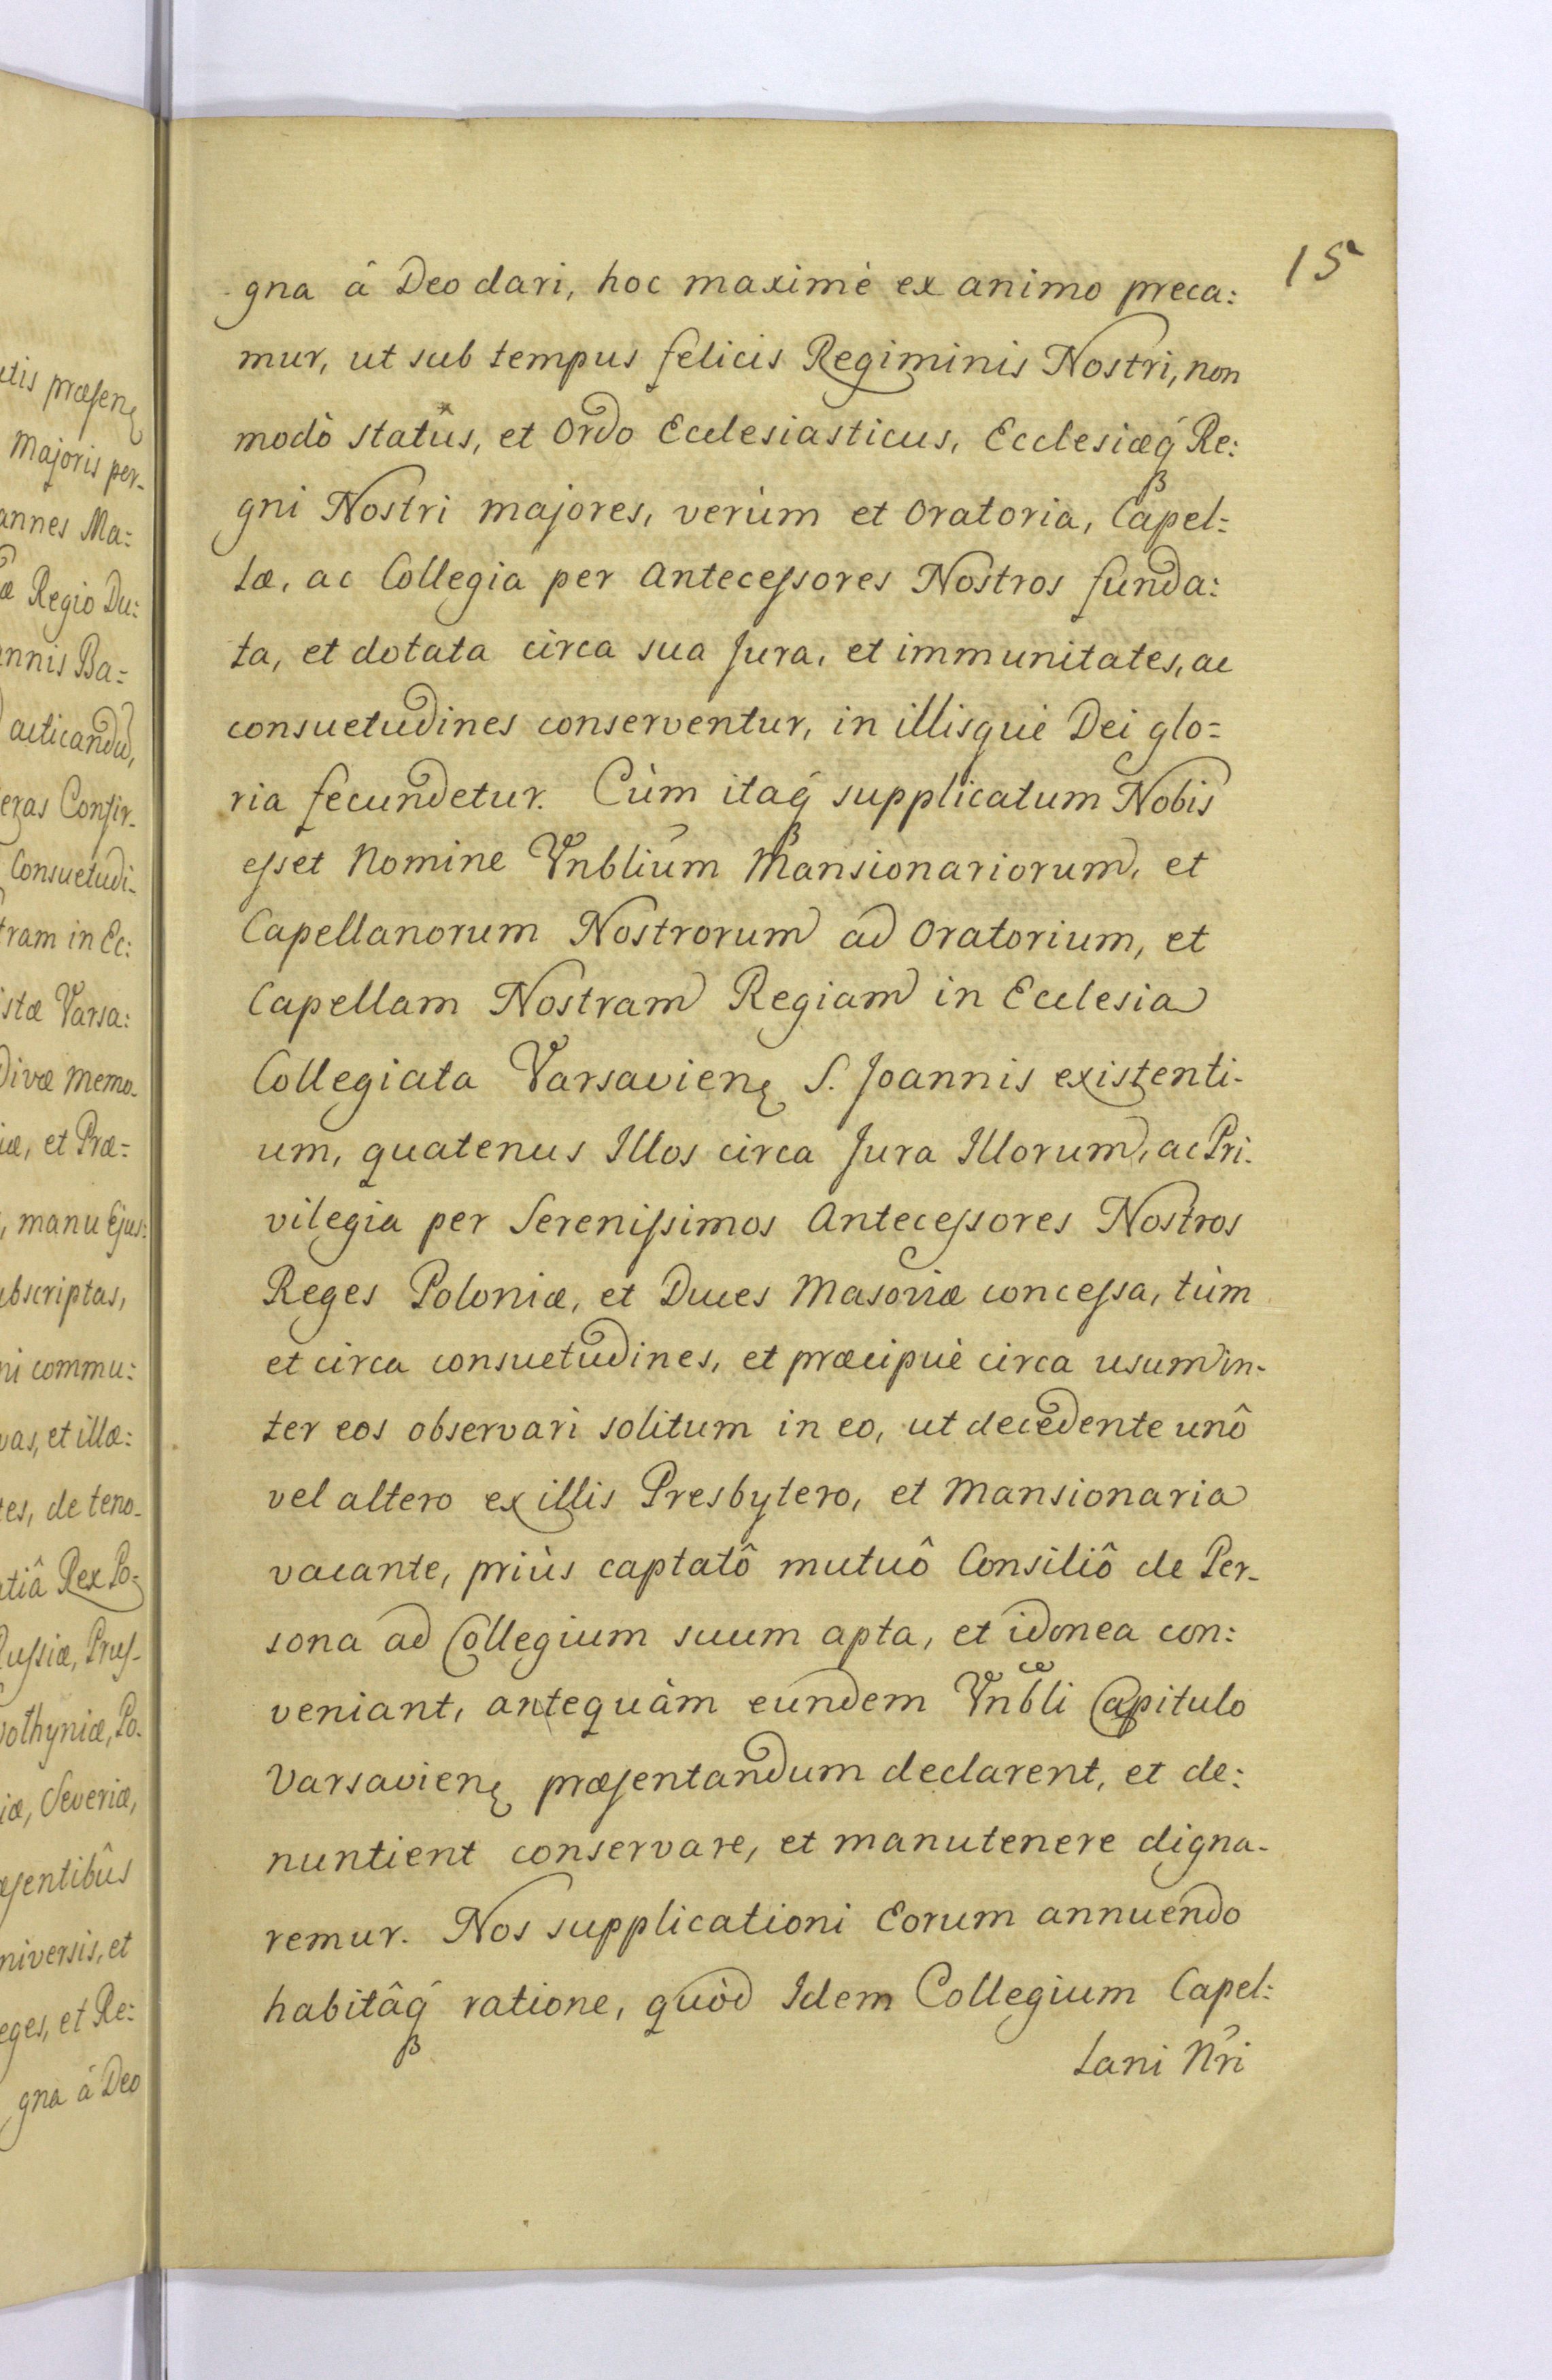 utis præsenę
Majoris per-
annes Ma:
æ Regio Du:
annis Ba=
acticandũ,
Consuetudi-
tram in Ec:
istæ Varsa:
Divæ memo-
iæ, et Præ=
, manu Ejus:
ubscriptas,
ni commu:
vas, et illæ:
tes, de teno-
atiâ Rex Po-
Russiæ, Prus-
othyniæ, Po-
iæ, Severiæ,
æsentibûs
niversis, et
eges, et Re:
gna á Deo
15
gna á Deo dari, hoc maximè ex animo preca:
mur, ut sub tempus felicis Regiminis Nostri, non
modò statûs, et Ordo Ecclesiasticus, Ecclesiæq́ Re:
gni Nostri majores, verùm et Oratoria, Capel=
læ, ac Collegia per Antecessores Nostros funda:
ta, et dotata circa sua Jura, et immunitates, ac
consuetudines conserventur, in illisquè Dei glo=
ria fecundetur. Cùm itaq́ supplicatum Nobis
esset Nomine Vnblium Mansionariorum, et
Capellanorum Nostrorum ad Oratorium, et
Capellam Nostram Regiam in Ecclesia
Collegiata Varsavienę S. Joannis existenti-
um, quatenus Illos circa Jura Illorum, ac Pri-
vilegia per Serenissimos Antecessores Nostros
Reges Poloniæ, et Duces Masoviæ concessa, tùm
et circa consuetudines, et præcipuè circa usum in-
ter eos observari solitum in eo, ut decedente unô
vel altero ex illis Presbytero, et Mansionaria
vacante, priùs captatô mutuô Consiliô de Per-
sona ad Collegium suum apta, et idonea con:
veniant, antequàm eundem Vnbli Capitulo
Varsavienę præsentandum declarent, et de:
nuntient conservare, et manutenere digna-
remur. Nos supplicationi Eorum annuendo
habitâq́ ratione, quòd Idem Collegium Capel:
lani Nr̃i